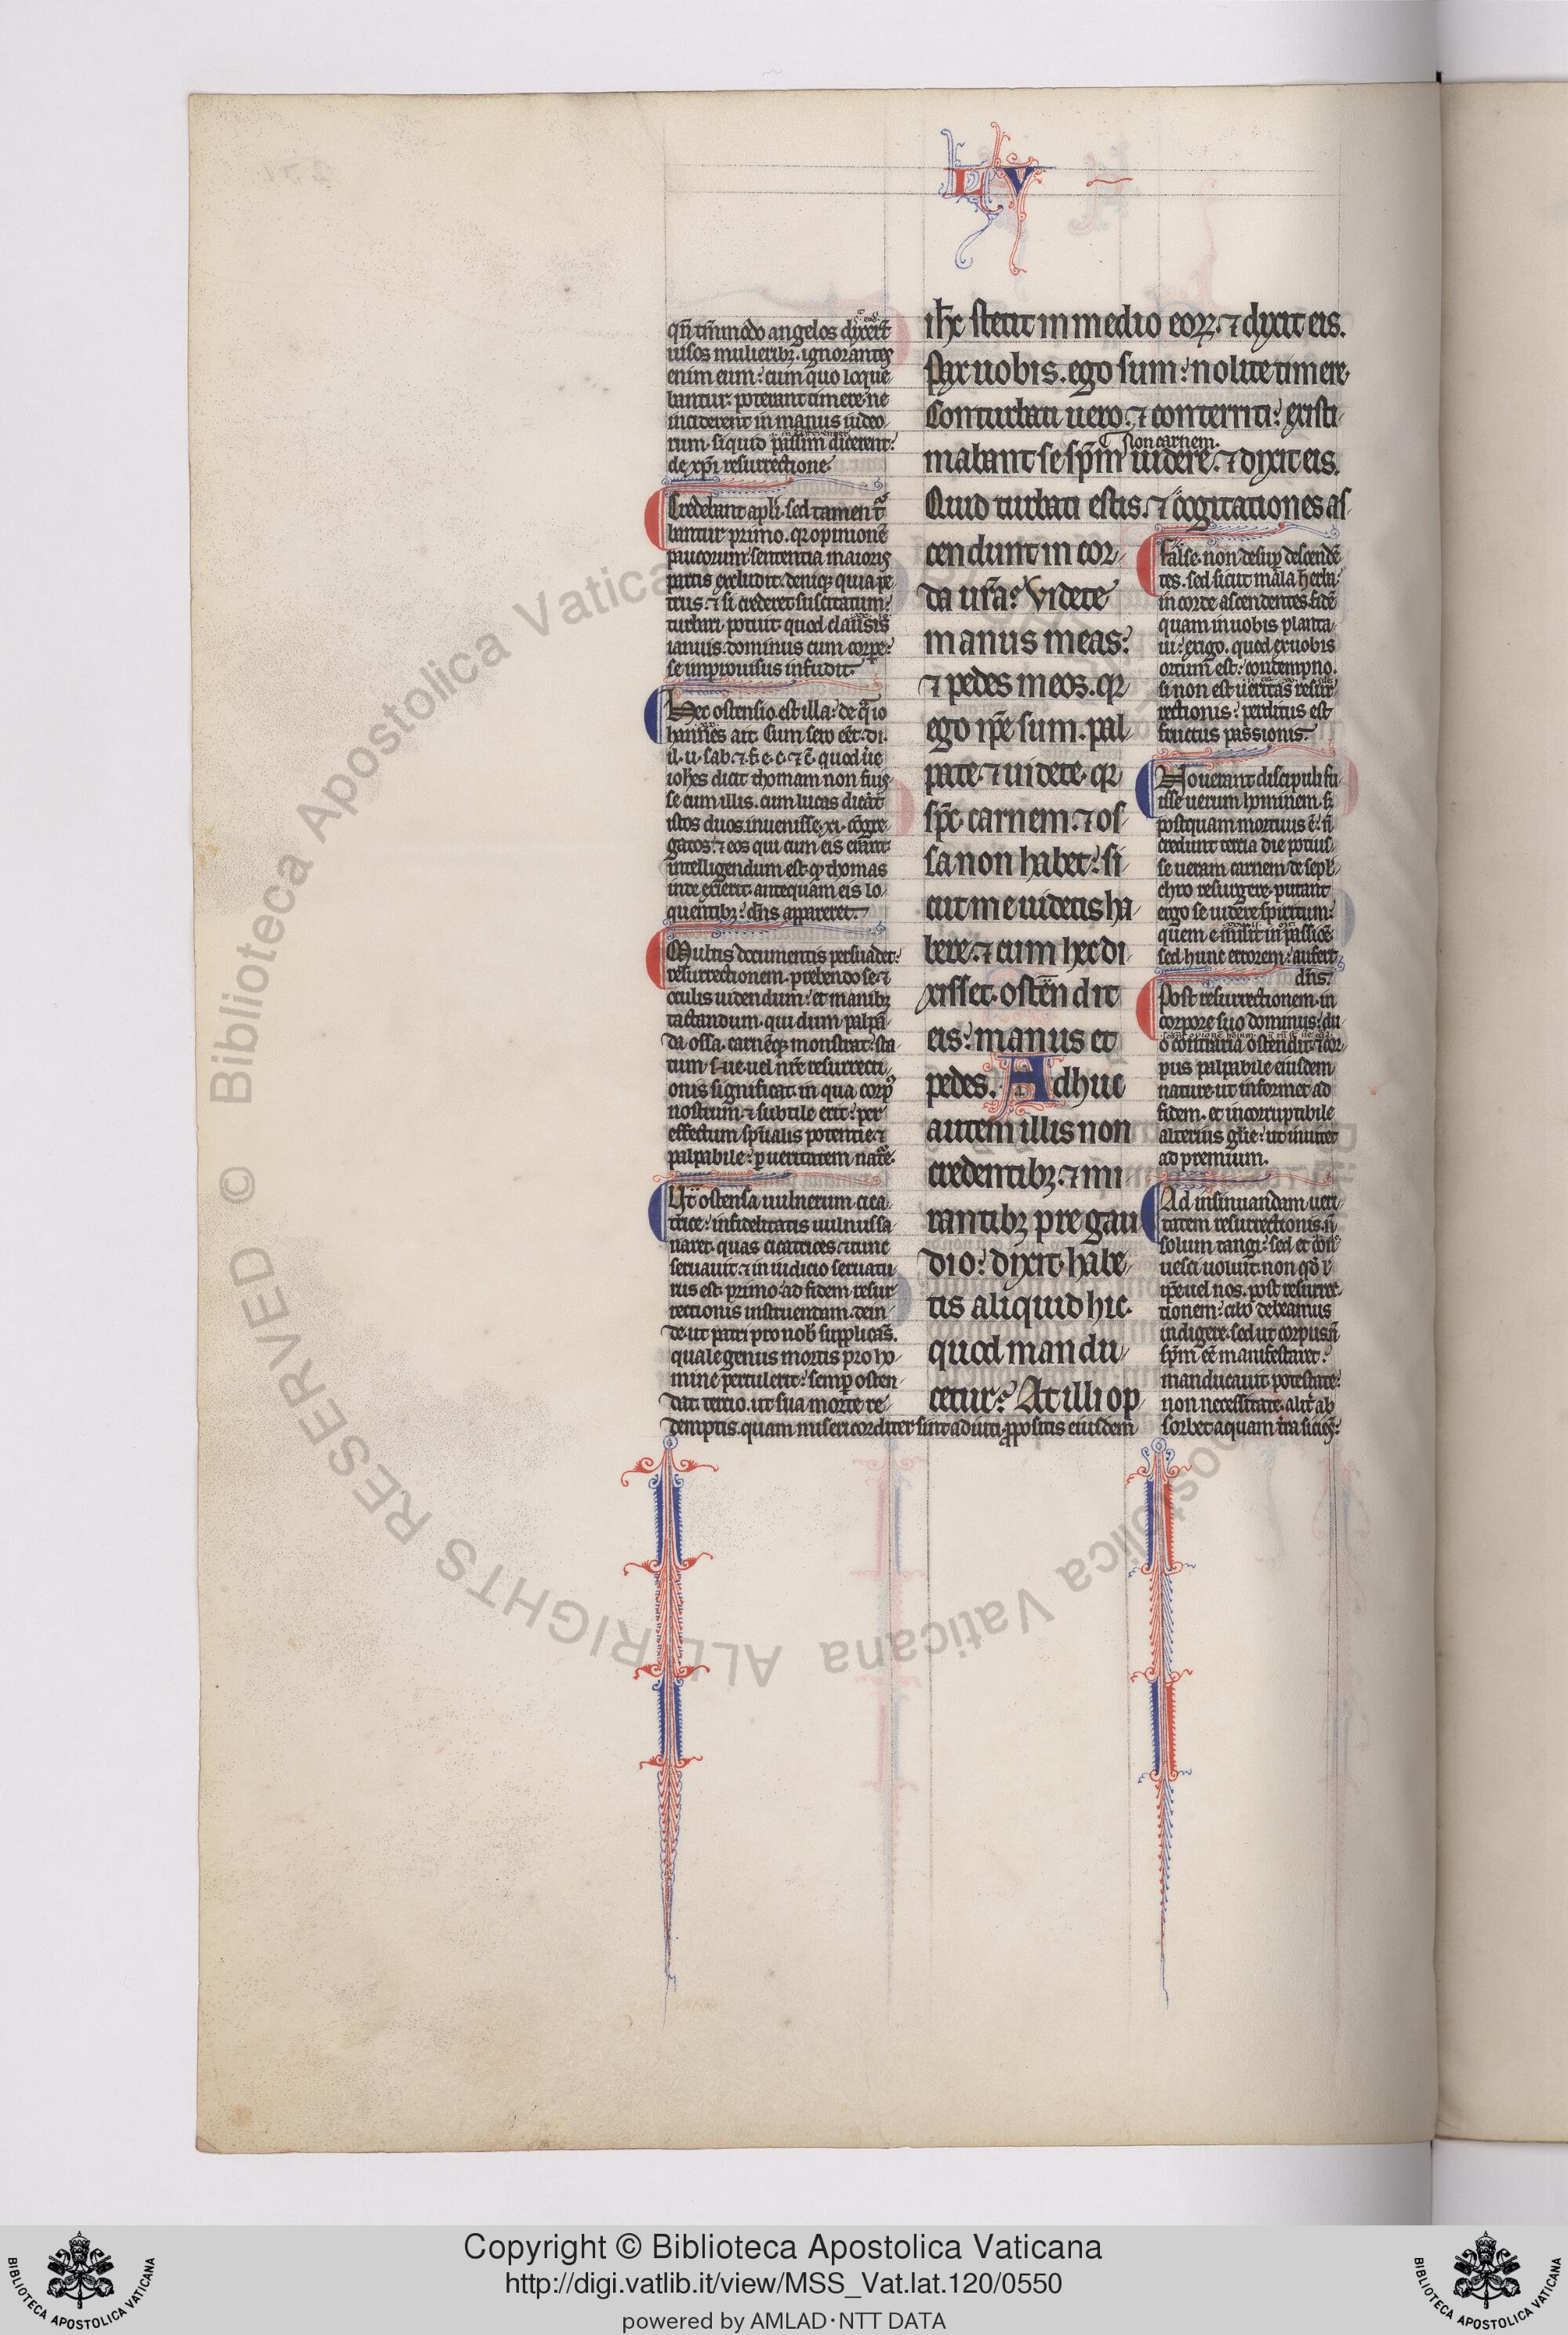 LV
qn̄ tm̄modo angelos dyxert̄
uisos mulieribꝫ. ignorantes
enim eum: cum quo loque
bantur: poterant timere ne
inciderent in manus iudeo
rum. siquid passim dicerent:
de xpī resurrectione.
Credebant apłi. sed tamen
bantur primo. qꝛ opinionē
paucorum: sententia maioris
partis excludit. deniqꝫ quia pe
trus. ⁊ si crederet suscitatum:
turbari potuit quod clausis
ianuis. dominus cum corpe:
se improuisus infudit.
Hec ostensio est illa: de q̄ io
hannes ait. Cum sero eēt. di.
il. u. sab. ⁊ f. e. c. ⁊ c̄. quod ūe
ioħes dicit thomam non fuis
se cum illis. cum lucas dicat
istos duos inuenisse. xi. cōgre
gatos: ⁊ eos qui cum eis erant
intelligendum est qꝫ thomas
inde exierit. antequam eis lo
quentibꝫ: dn̄s appareret.
Multis documentis persuadet:
resurrectionem. prebendo se ⁊
oculis uidendum: et manibꝫ
tactandum. qui dum palpā
da ossa. carnēqꝫ monstrat: sta
tum sue uel nr̄e resurrecti
onis significat. in qua corpꝰ
nostrum ⁊ subtile erit: per
effectum spūalis potentie ⁊
palpabile: p ueritatem nat̄e.
Vt ostensa uulnerum cica
trice: infidelitatis uulnus sa
naret. quas cicatrices. ⁊ tunc
seruauit: ⁊ in iudicio seruatu
rus est. primo: ad fidem resur
rectionis instruendam. dein
de ut patri pro nob̄ supplicās.
quale genus mortis pro ho
mine pertulerit: semp osten
dat. tercio. ut sua morte re
demptis. quam misericorditer sint adiuti: ppositis eiusdem
iħc stetit in medio eoꝝ. ⁊ dyxit eis.
Pax uobis. ego sum: nolite timere.
Conturbati uero. ⁊ conterriti: existi
non carnem.
mabant se spm̄ uidere. ⁊ dixit eis.
Quid turbati estis. ⁊ cogitationes as
cendunt in cor
da ur̄a? Videte
manus meas:
⁊ pedes meos. qꝛ
ego ip̄e sum. pal
pate. ⁊ uidete. qꝛ
spc̄. carnem. ⁊ os
sa non habet: si
cut me uidetis ha
bere. ⁊ cum hec di
xisset. ostendit
eis: manus et
pedes. Adhuc
autem illis non
credentibꝫ. ⁊ mi
rantibꝫ pre gau
dio: dixit. habe
tis aliquid hic.
quod mandu
cetur? At illi op
False. non desup descendē
tes. sed sicut mala herba:
in corde ascendentes. fidē
quam in uobis planta
ui: exigo. quod ex uobis
ortum est: contempno.
si non est ueritas resur
rectionis: perditus est
fructus passionis.
Nouerant discipuli fu
isse uerum hominem. s̄
postquam mortuus ē: n̄
credunt tercia die potuis
se ueram carnem de sepl
chro resurgere. putant
ergo se uidere spiritum:
quem emisit in passiōe.
sed hunc errorem: aufert
dn̄s.
Post resurrectionem. in
corpore suo dominus: du
o contraria ostendit. ⁊ cor
pus palpabile eiusdem
nature. ut informet ad
fidem. et incorruptibile
alterius glīe: ut inuitet
ad premium.
Ad insinuandam ueri
tatem resurrectionis. n̄
solum tangi: sed et con
uesci uoluit. non qd̄ l
ip̄e uel nos. post resurrec
tionem: cibo debeamus
indigere. sed ut corpus n̄
spm̄ eē manifestaret:
manducauit potestate:
non necessitate. alit̄ ab
sorbet aquam t̄ra siciēs:
© Biblioteca Apostolica Vaticana ALL RIGHTS RESERVED
Copyright © Biblioteca Apostolica Vaticana
http://digi.vatlib.it/view/MSS_Vat.lat.120/0550
powered by AMLAD·NTT DATA
BIBLIOTECA APOSTOLICA VATICANA
BIBLIOTECA APOSTOLICA VATICANA